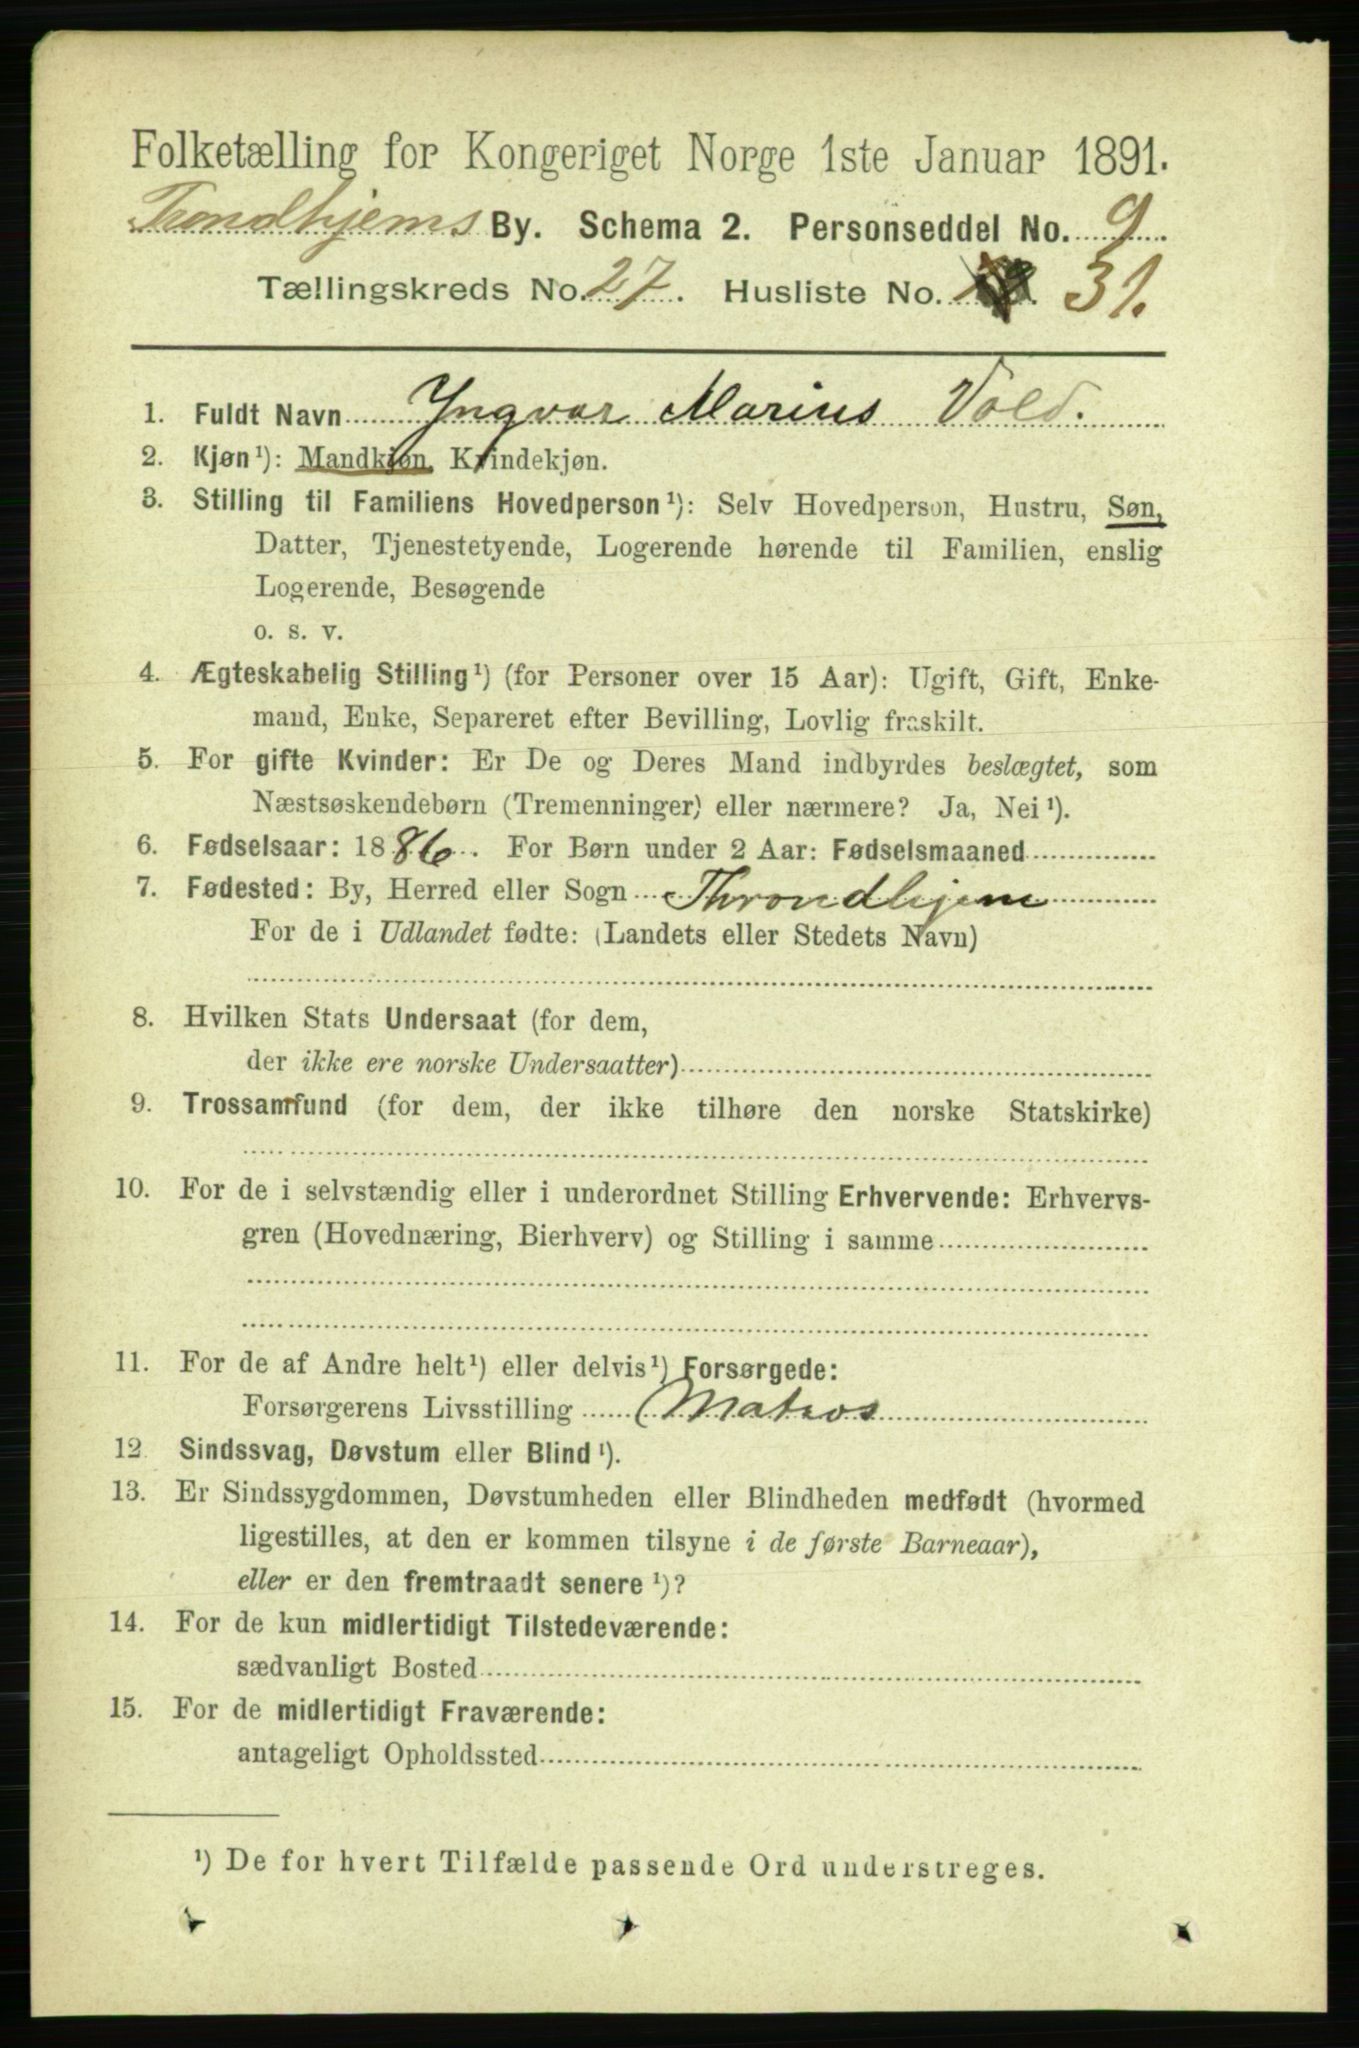 Folketælling for Kongeriget Norge 1ste Januar 1891.
Trondhjems By. Schema 2. Personseddel No. 9.
Tællingskreds No. 27. Husliste No. 31.
1. Fuldt Navn Yngvar Marius Vold.
2. Kjøn ¹): Mandkjøn, Kvindekjøn.
3. Stilling til Familiens Hovedperson ¹): Selv Hovedperson, Hustru, Søn,
Datter, Tjenestetyende, Logerende hørende til Familien, enslig
Logerende, Besøgende
o. s. v.
4. Ægteskabelig Stilling ¹) (for Personer over 15 Aar): Ugift, Gift, Enke-
mand, Enke, Separeret efter Bevilling, Lovlig fraskilt.
5. For gifte Kvinder: Er De og Deres Mand indbyrdes beslægtet, som
Næstsøskendebørn (Tremenninger) eller nærmere? Ja, Nei ¹).
6. Fødselsaar: 1886. For Børn under 2 Aar: Fødselsmaaned
7. Fødested: By, Herred eller Sogn Throndhjem
For de i Udlandet fødte: (Landets eller Stedets Navn)
8. Hvilken Stats Undersaat (for dem,
der ikke ere norske Undersaatter)
9. Trossamfund (for dem, der ikke tilhøre den norske Statskirke)
10. For de i selvstændig eller i underordnet Stilling Erhvervende: Erhvervs-
gren (Hovednæring, Bierhverv) og Stilling i samme
11. For de af Andre helt ¹) eller delvis ¹) Forsørgede:
Forsørgerens Livsstilling Matros
12 Sindssvag, Døvstum eller Blind ¹).
13. Er Sindssygdommen, Døvstumheden eller Blindheden medfødt (hvormed
ligestilles, at den er kommen tilsyne i de første Barneaar),
eller er den fremtraadt senere ¹)?
14. For de kun midlertidigt Tilstedeværende:
sædvanligt Bosted
15. For de midlertidigt Fraværende:
antageligt Opholdssted
¹) De for hvert Tilfælde passende Ord understreges.